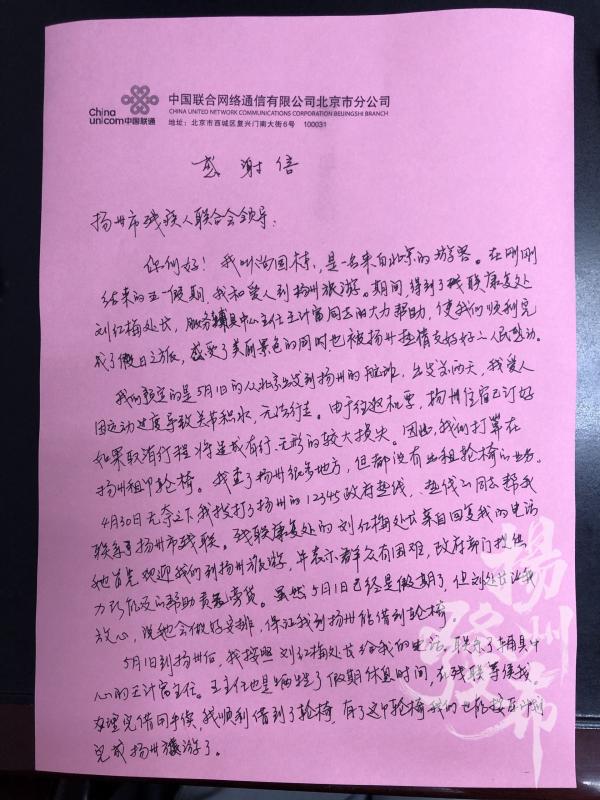 China
unicom中国联通
中国联合网络通信有限公司北京市分公司
CHINA UNITED NETWORK COMMUNICATIONS CORPORATION BEIJINGSHI BRANCH
地址：北京市西城区复兴门南大街6号 100031
感谢信
扬州市残疾人联合会领导：
你们好！我叫 国栋，是一名来自北京的游客。在刚刚
结束的五一假期，我和爱人到扬州旅游。期间，得到了残联康复处
刘红梅处长，服务辅具中心主任王计富同志的大力帮助，使我们顺利完
成了假日之旅，感受了美丽景色的同时，也被扬州热情友好的人民感动。
我们预定的是5月1日的从北京出发到扬州的航班，出发前两天，我爱人
因运动过度导致关节积水，无法行走。由于往返机票，扬州住宿已订好
如果取消行程将造成有形、无形的较大损失。因此，我们打算在
扬州租用轮椅。我查了扬州很多地方，但都没有出租轮椅的业务。
4月30日无奈之下我拨打了扬州的12345政府热线，热线的同志帮我
联系了扬州市残联。残联康复处的刘红梅处长亲自回复我的电话
她首先欢迎我们到扬州旅游，并表示群众有困难，政府部门提供
力所能及的帮助责无旁贷。虽然5月1日已经是假期了，但刘处长让我
放心，说她会做好安排，保证我到扬州能借到轮椅。
5月1日到扬州后，我按照刘红梅处长给我的电话，联系了辅具中
心的王计富主任。王主任也是牺牲了假期休息时间，在残联等候我。
办理完借用手续，我顺利借到了轮椅，有了这个轮椅我们也能按原计划
完成扬州旅游了。
扬州發布